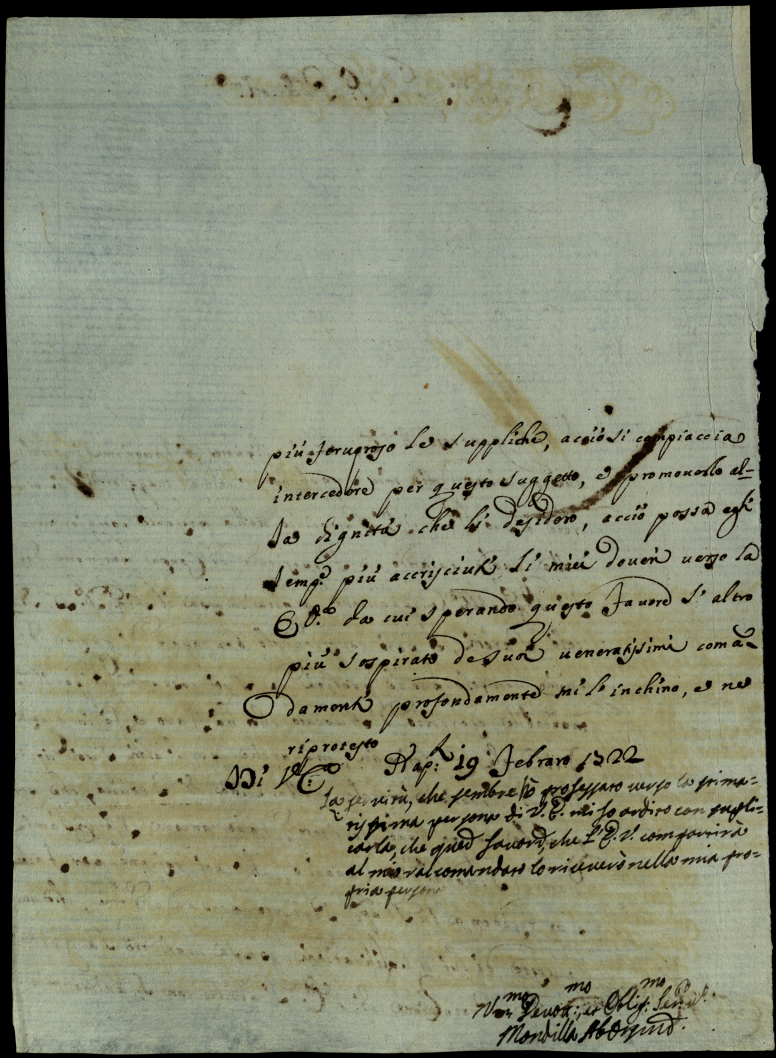 più feruoroso le suppliche, acciò si compiaccia
intercedere per questo suggetto, e promouerlo al-
la dignità che li desidero, acciò possa egli
semp.e più accrisciuti li miei doueri uerso la
E. V. da cui sperando questo fauore e l'altro
più sospirato de suoi ueneratissimi coman-
damenti profondamente mi le inchino, e ne
riprotesto
Di V. E. Nap.li 19 Febraro 1722
La seruitù, che sembre hò professato uerso la stima-
tissima persona di V. E. mi fò ardito con supli-
carla, che quel fauore, che l'E. V. compartirà
al mio racomandato lo riceuerò nella mia pro-
pria persona
Deuot.mo et Oblig.mo Seru.
Mondilla